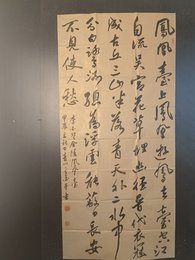 鳳凰臺上鳳凰遊鳳去臺空江
自流吳宮花草埋幽徑晉代衣冠
成古丘三山半落青天外二水中
分白鷺洲總為浮雲能蔽日長安
不見使人愁
李白登金陵鳳凰臺